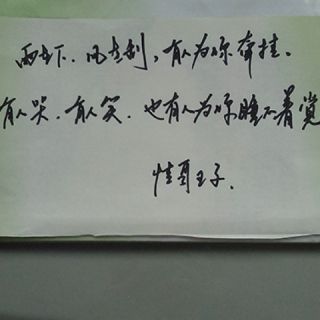 雨在下.风在刮,有人为你牵挂.
有人哭.有人笑.也有人为你睡不着觉
王子.